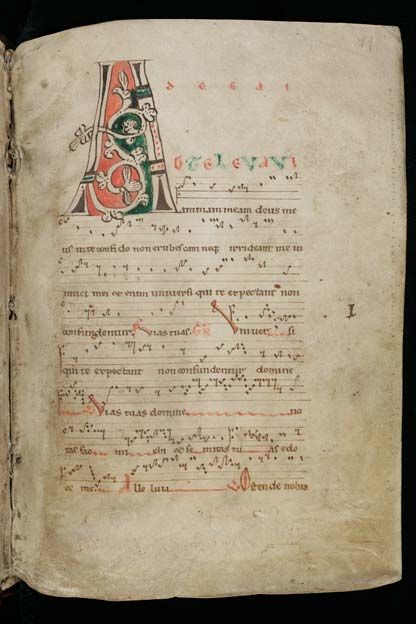 A
D TE LEVAVI
animam meam deus me
us in te confido non erubescam neq; irrideant me in
imici mei et enim universi qui te expectant non
confundentur. Vias tuas. GR Univer si
qui te expectant non confundentur domine
Vias tuas domine no
tas fac mi chi et se mitas tu as edo
ce me Alle luia Ostende nobis
I